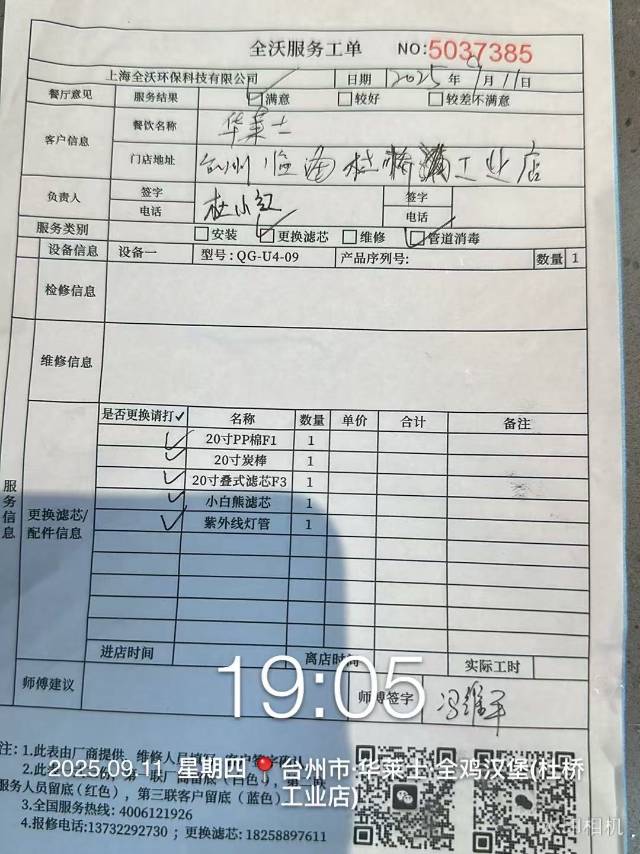 全沃服务工单 NO:5037385
上海全沃环保科技有限公司 日期 2025年9月11日
餐厅意见 服务结果 ☑满意 □较好 □较差不满意
客户信息 餐饮名称 华莱士
门店地址 台州临海杜桥工业店
负责人 签字 杜小红 签字
电话 电话
服务类别 □安装 ☑更换滤芯 □维修 ☑管道消毒
设备信息 设备一 型号:QG-U4-09 产品序列号: 数量 1
检修信息
维修信息
服务信息
更换滤芯/配件信息
是否更换请打✓ 名称 数量 单价 合计 备注
✓ 20寸PP棉F1 1
✓ 20寸炭棒 1
✓ 20寸叠式滤芯F3 1
✓ 小白熊滤芯 1
✓ 紫外线灯管 1
进店时间 离店时间 实际工时
师傅建议 师傅签字 冯维平
19:05
注:1.此表由厂商提供，维修人员填写，客户签字
2.此
2025.09.11 星期四 台州市·华莱士·全鸡汉堡(杜桥工业店)
服务人员留底(红色)，第三联客户留底(蓝色)
3.全国服务热线: 4006121926
4.报修电话:13732292730；更换滤芯: 18258897611
水印相机